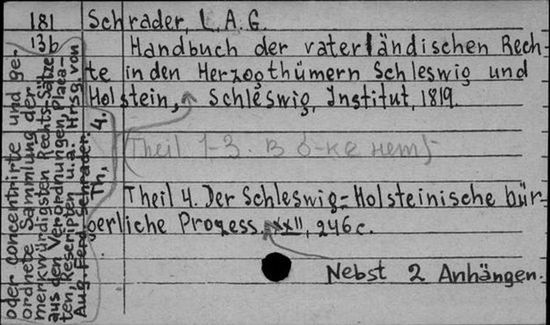 181 Schrader, L. A. G.
13b Handbuch der vaterländischen Rech-
te in den Herzogthümern Schleswig und
Holstein, Schleswig, Institut, 1819.
(Theil 1-3. В б-ке нет)
Theil 4. Der Schleswig=Holsteinische bür-
gerliche Prozess. XXII, 246 c.
Nebst 2 Anhängen.
oder concentrirte und ge-
ordnete Sammlung der
merkwürdigsten Rechts-Sätze
aus den Verordnungen, Placa-
ten, Rescripten u.a. Hrsg. von
Aug. Ferd. Schrader. Th, 4.